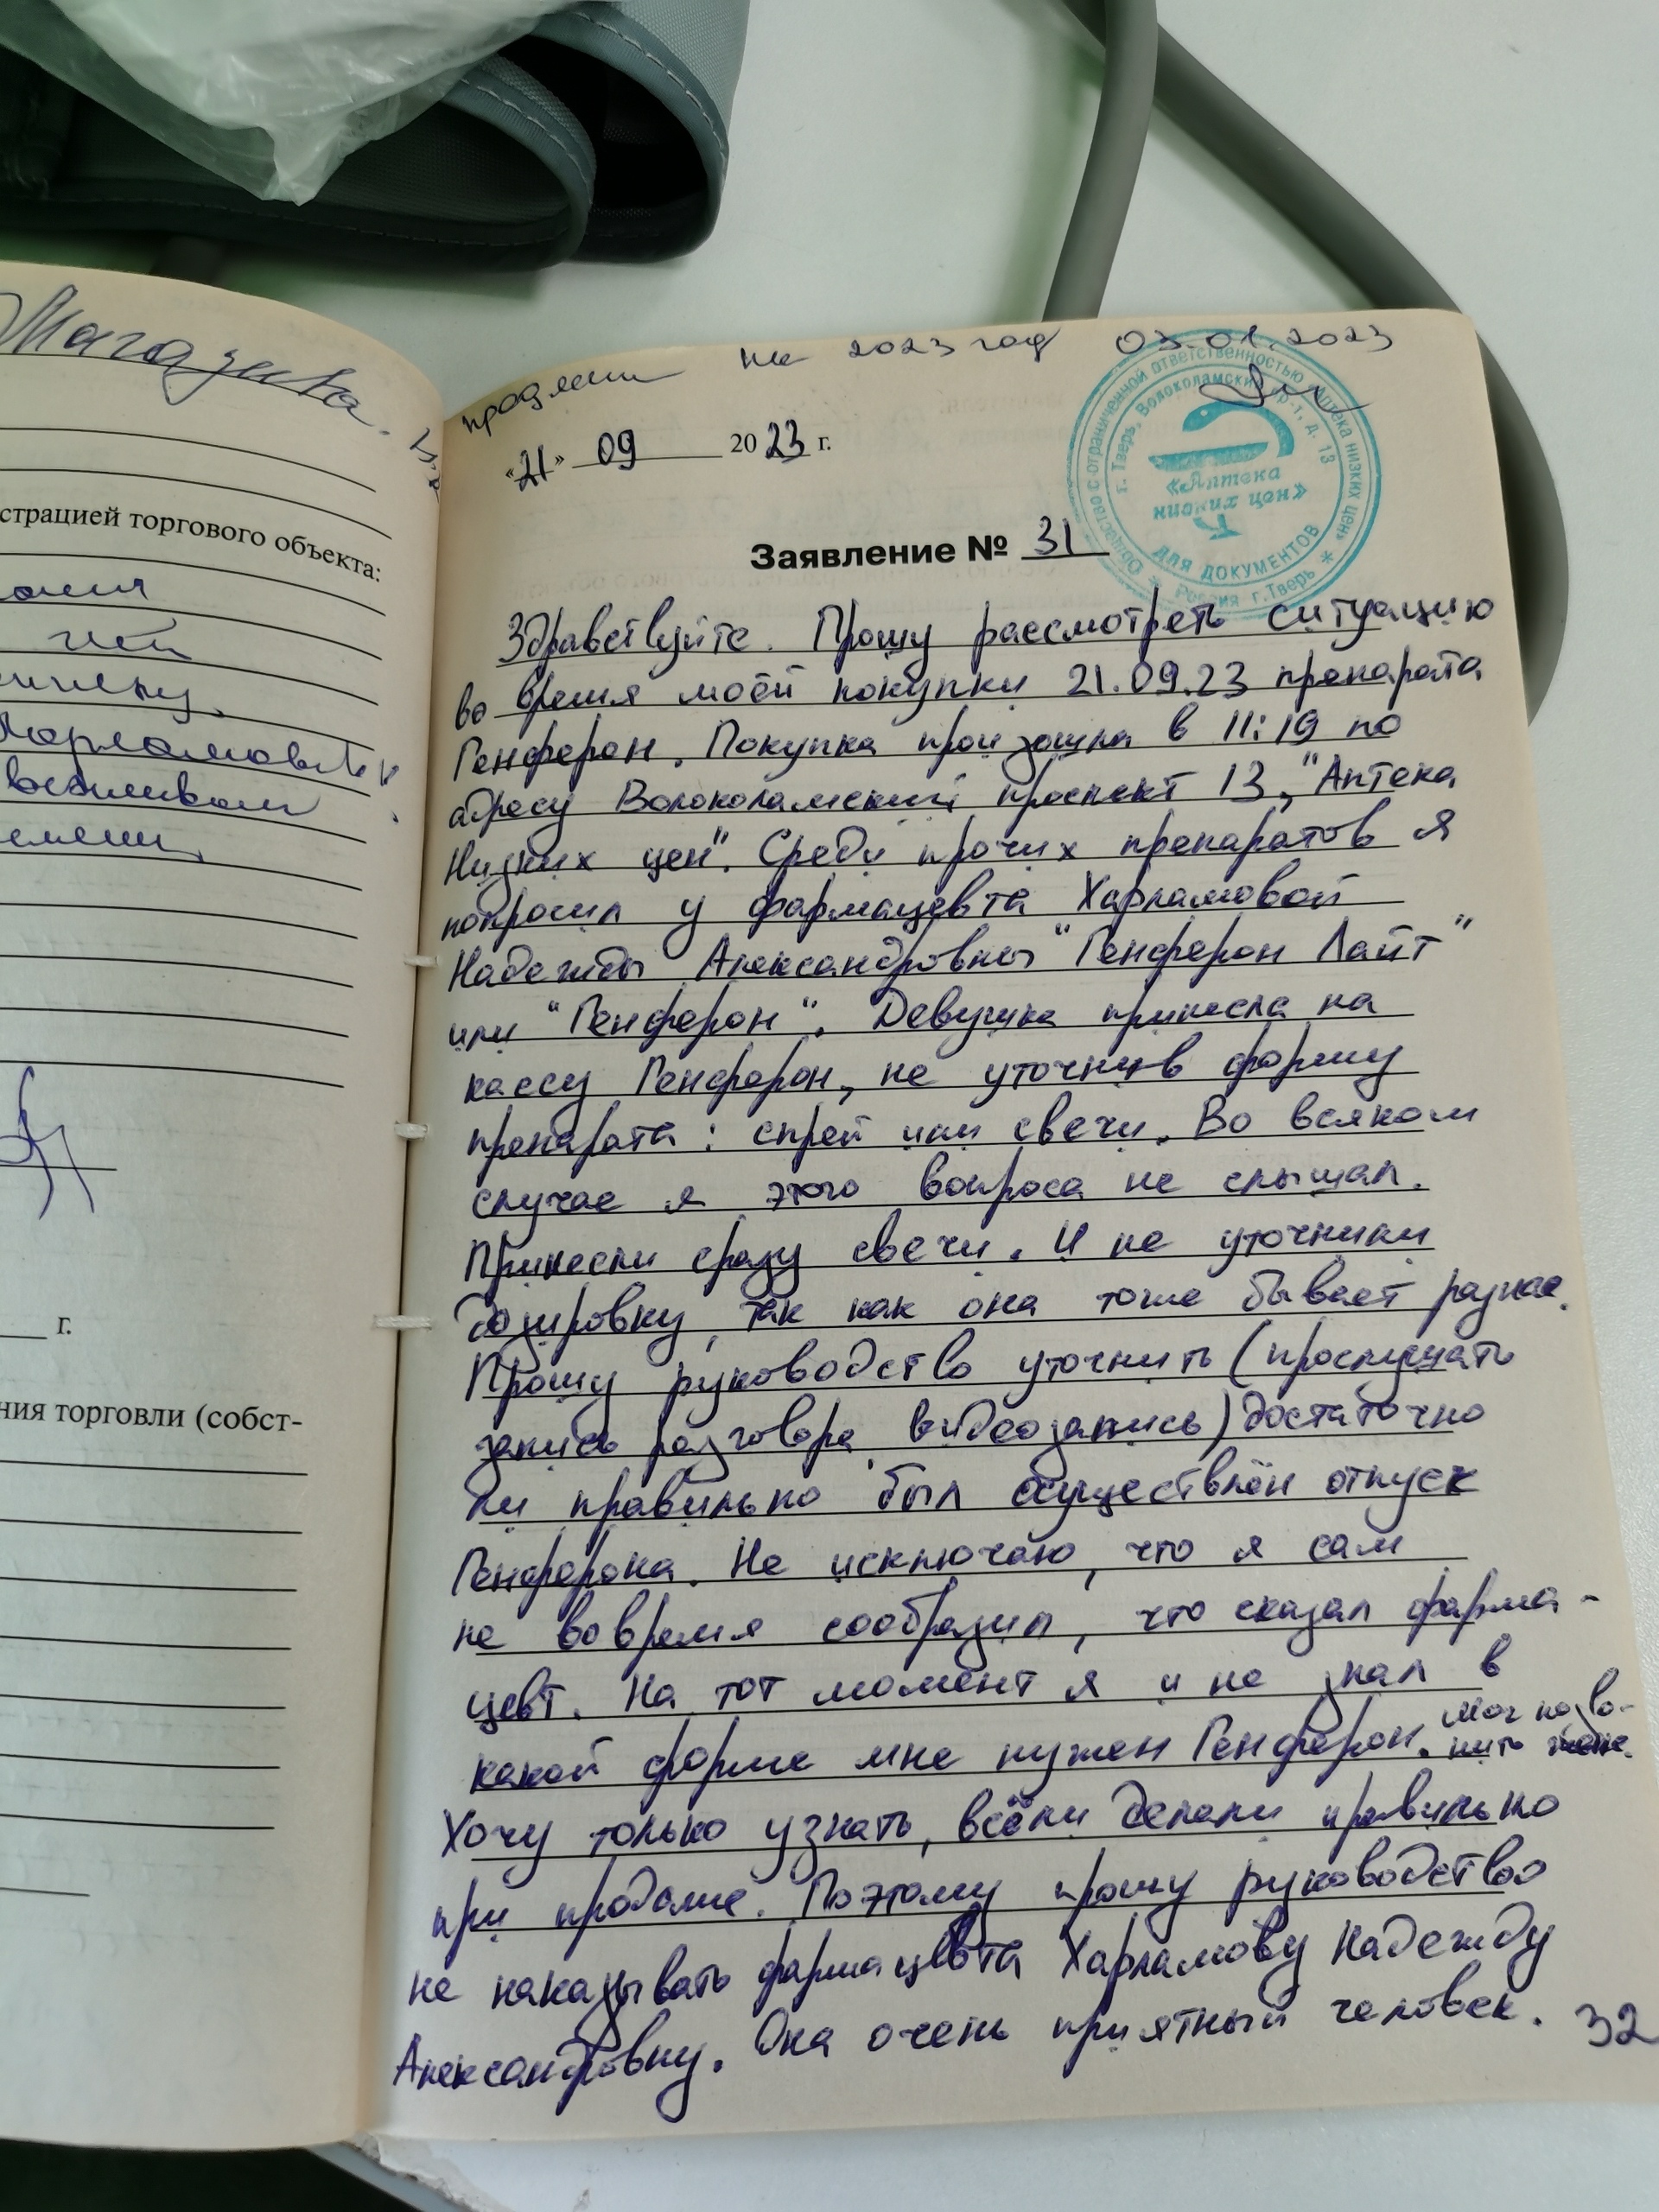 Магазина.
страцией торгового объекта:
г.
ния торговли (собст-
продлен на 2023 год 03.01.2023
«21» 09 2023 г.
Общество с ограниченной ответственностью «Аптека низких цен»
г. Тверь, Волоколамский пр-т, д. 13
«Аптека
низких цен»
ДЛЯ ДОКУМЕНТОВ
Россия г.Тверь
Заявление № 31
Здравствуйте. Прошу рассмотреть ситуацию
во время моей покупки 21.09.23 препарата
Генферон. Покупка произошла в 11:19 по
адресу Волоколамский проспект 13, "Аптека
Низких цен". Среди прочих препаратов я
попросил у фармацевта Харламовой
Надежды Александровны "Генферон Лайт"
или "Генферон". Девушка принесла на
кассу Генферон, не уточнив форму
препарата: спрей или свечи. Во всяком
случае я этого вопроса не слышал.
Принесли сразу свечи. И не уточнили
дозировку, так как она тоже бывает разная.
Прошу руководство уточнить (прослушать
запись разговора, видеозапись) достаточно
ли правильно был осуществлён отпуск
Генферона. Не исключаю, что я сам
не вовремя сообразил, что сказал фарма-
цевт. На тот момент я и не знал в
какой форме мне нужен Генферон. Мог позво-
нить жене.
Хочу только узнать, всё ли делали правильно
при продаже. Поэтому прошу руководство
не наказывать фармацевта Харламову Надежду
Александровну. Она очень приятный человек. 32